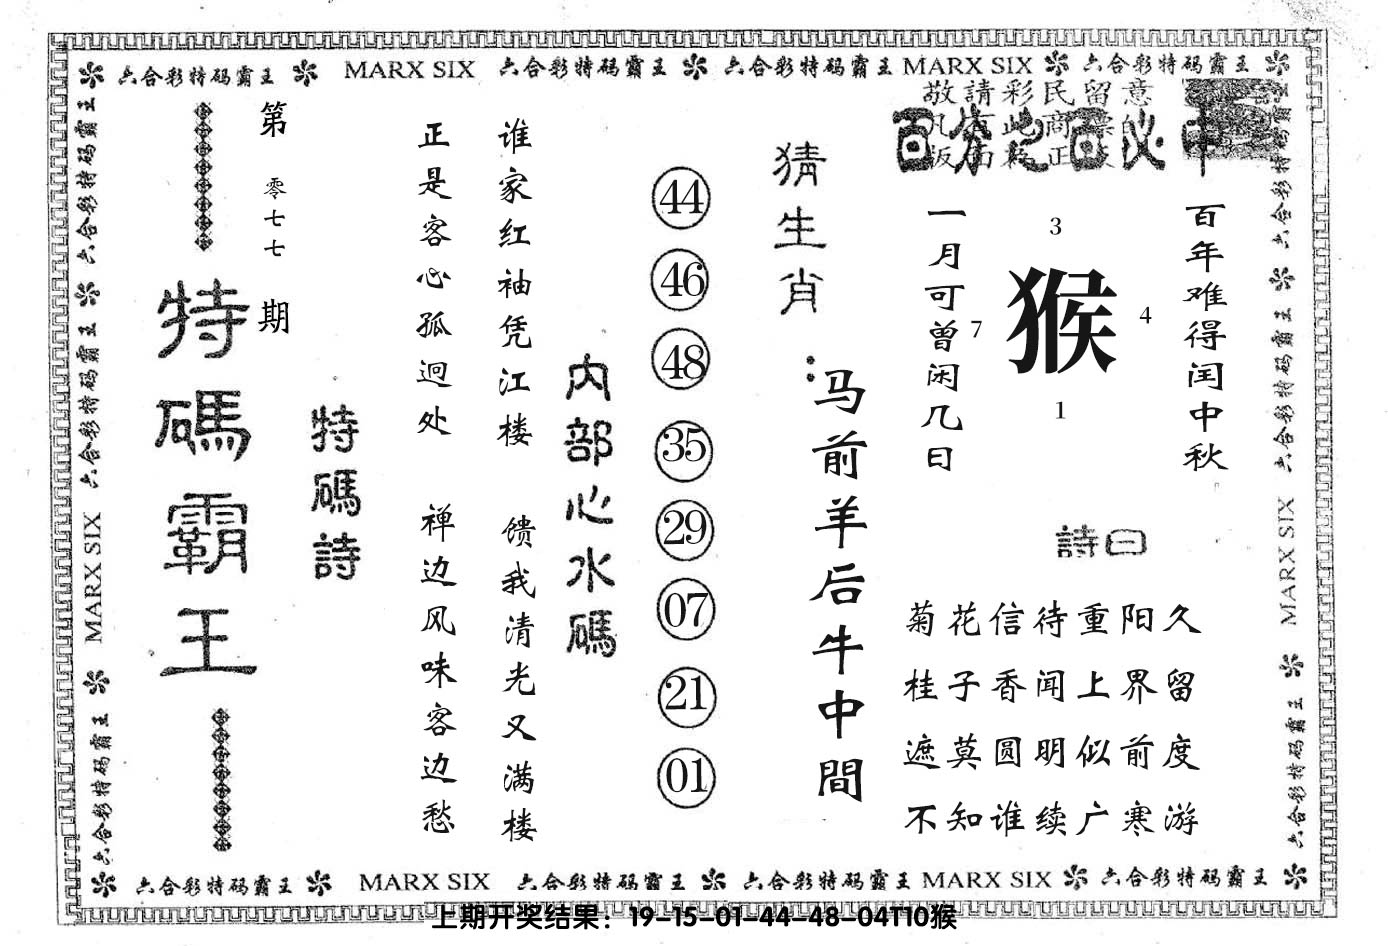 六合彩特码霸王 MARX SIX 六合彩特码霸王 六合彩特码霸王 MARX SIX 六合彩特码霸王
敬請彩民留意
百分之百必中
百年难得闰中秋
一月可曾闲几日
3
7 猴 4
1
詩曰
菊花信待重阳久
桂子香闻上界留
遮莫圆明似前度
不知谁续广寒游
猜生肖：
马前羊后牛中間
44
46
48
35
29
07
21
01
内部心水碼
谁家红袖凭江楼 馈我清光又满楼
正是客心孤迥处 禅边风味客边愁
特碼詩
第零七七期
特碼霸王
六合彩特码霸王 六合彩特码霸王 MARX SIX 六合彩特码霸王
六合彩特码霸王 六合彩特码霸王 MARX SIX 六合彩特码霸王
六合彩特码霸王 MARX SIX 六合彩特码霸王 六合彩特码霸王 MARX SIX 六合彩特码霸王
上期开奖结果：19-15-01-44-48-04T10猴